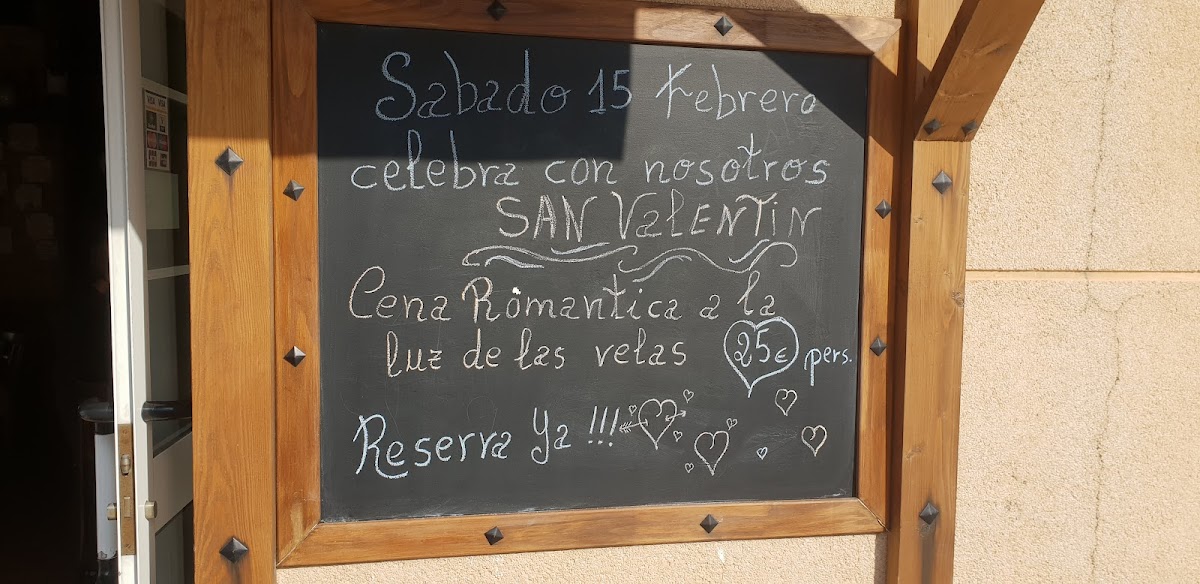 Sabado 15 Febrero
celebra con nosotros
SAN ValENTiN
Cena Romantica a la
luz de las velas 25€ pers.
Reserva Ya !!!
VISA VISA